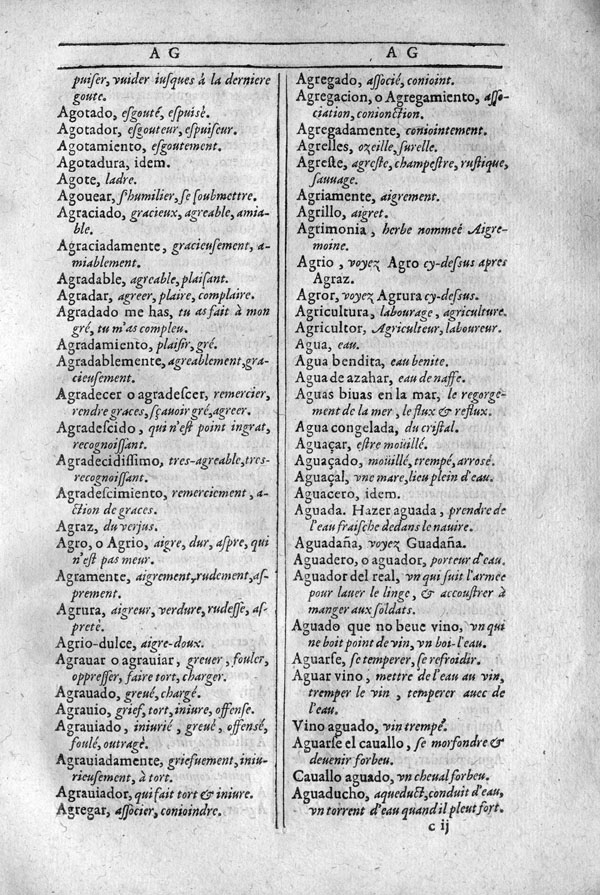 AG
puiser, vuider iusques à la derniere
goute.
Agotado, esgouté, espuisé.
Agotador, esgouteur, espuiseur.
Agotamiento, esgoutement.
Agotadura, idem.
Agote, ladre.
Agouear, s'humilier, se soubmettre.
Agraciado, gracieux, agreable, amia-
ble.
Agraciadamente, gracieusement, a-
miablement.
Agradable, agreable, plaisant.
Agradar, agreer, plaire, complaire.
Agradado me has, tu as fait à mon
gré, tu m'as compleu.
Agradamiento, plaisir, gré.
Agradablemente, agreablement, gra-
cieusement.
Agradecer o agradescer, remercier,
rendre graces, sçauoir gré, agreer.
Agradescido, qui n'est point ingrat,
recognoissant.
Agradecidissimo, tres-agreable, tres-
recognoissant.
Agradescimiento, remerciement, a-
ction de graces.
Agraz, du verjus.
Agro, o Agrio, aigre, dur, aspre, qui
n'est pas meur.
Agramente, aigrement, rudement, as-
prement.
Agrura, aigreur, verdure, rudesse, as-
preté.
Agrio-dulce, aigre-doux.
Agrauar o agrauiar, greuer, fouler,
oppresser, faire tort, charger.
Agrauado, greué, chargé.
Agrauio, grief, tort, iniure, offense.
Agrauiado, iniurié, greué, offensé,
foulé, outragé.
Agrauiadamente, griefuement, iniu-
rieusement, à tort.
Agrauiador, qui fait tort & iniure.
Agregar, associer, conioindre.
AG
Agregado, associé, conioint.
Agregacion, o Agregamiento, asso-
ciation, conionction.
Agregadamente, coniointement.
Agrelles, ozeille, surelle.
Agreste, agreste, champestre, rustique,
sauuage.
Agriamente, aigrement.
Agrillo, aigret.
Agrimonia, herbe nommeé Aigre-
moine.
Agrio, voyez Agro cy-dessus apres
Agraz.
Agror, voyez Agrura cy-dessus.
Agricultura, labourage, agriculture.
Agricultor, Agriculteur, laboureur.
Agua, eau.
Agua bendita, eau benite.
Agua de azahar, eau de naffe.
Aguas biuas en la mar, le regorge-
ment de la mer, le flux & reflux.
Agua congelada, du cristal.
Aguaçar, estre moüillé.
Aguaçado, moüillé, trempé, arrosé.
Aguaçal, vne mare, lieu plein d'eau.
Aguacero, idem.
Aguada. Hazer aguada, prendre de
l'eau fraische dedans le nauire.
Aguadaña, voyez Guadaña.
Aguadero, o aguador, porteur d'eau.
Aguador del real, vn qui suit l'armee
pour lauer le linge, & accoustrer à
manger aux soldats.
Aguado que no beue vino, vn qui
ne boit point de vin, vn boi-l'eau.
Aguarse, se temperer, se refroidir.
Aguar vino, mettre de l'eau au vin,
tremper le vin, temperer auec de
l'eau.
Vino aguado, vin trempé.
Aguarse el cauallo, se morfondre &
deuenir forbeu.
Cauallo aguado, vn cheual forbeu.
Aguaducho, aqueduct, conduit d'eau,
vn torrent d'eau quand il pleut fort.
c ij